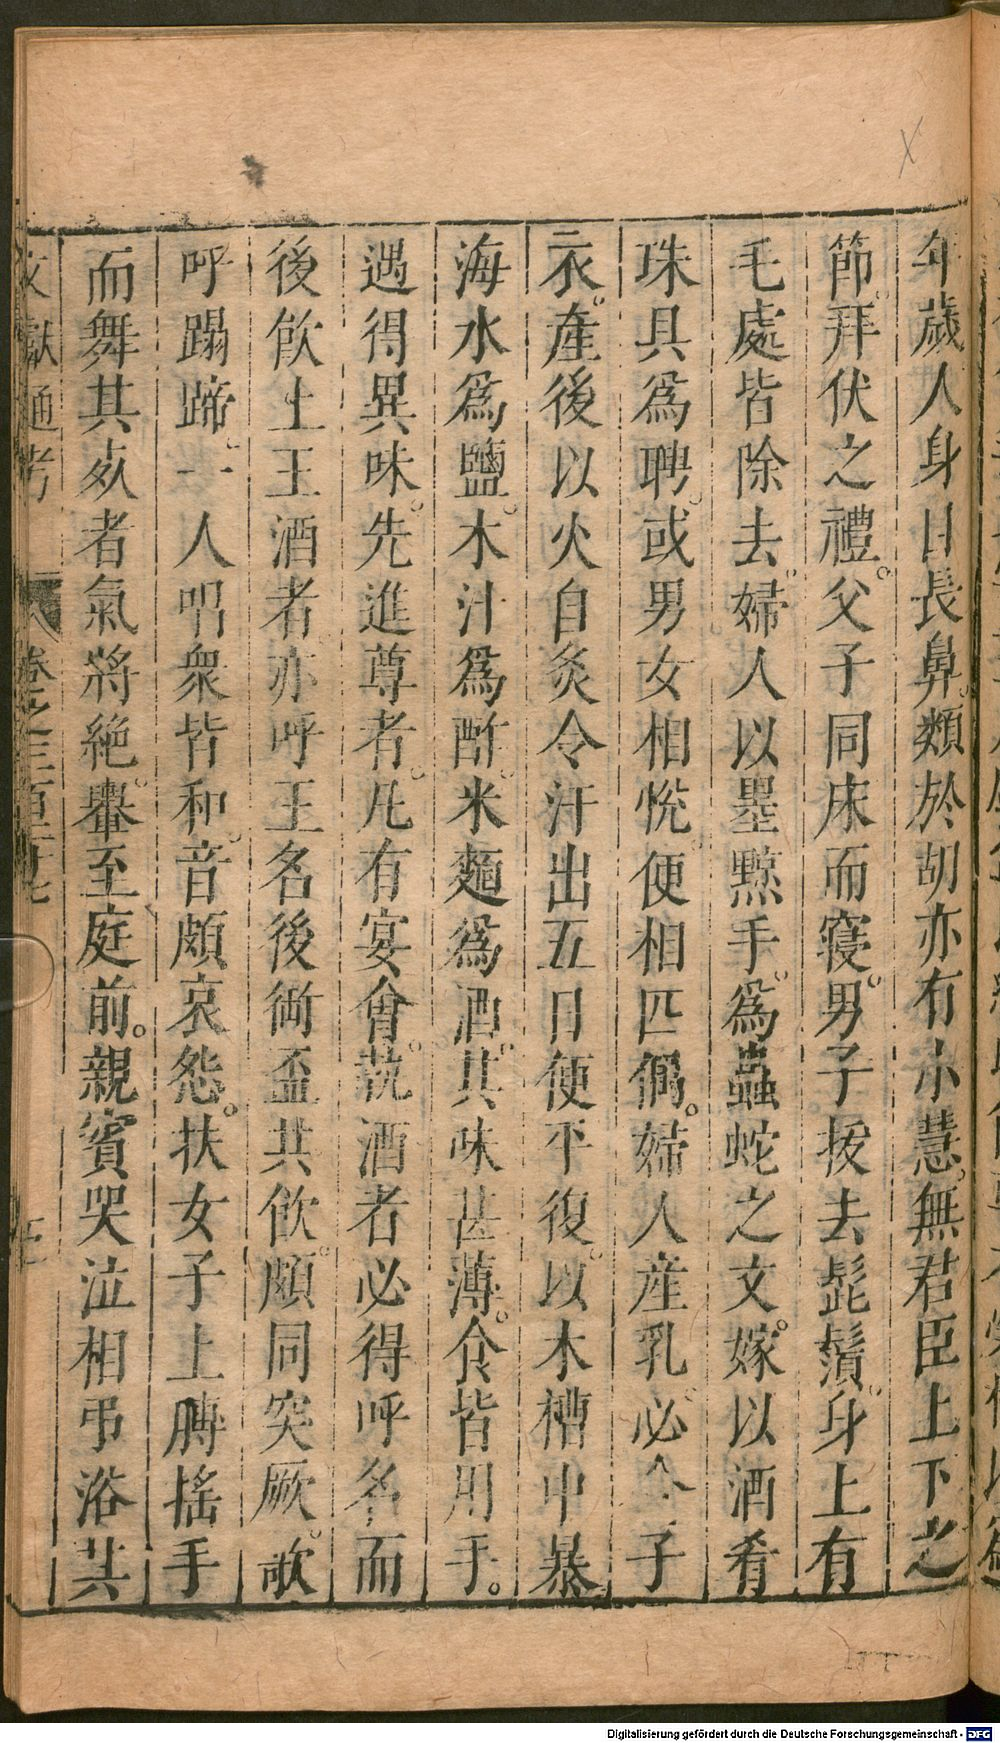 年歲人身日長鼻類於胡亦有小慧無君臣上下之
節拜伏之禮父子同床而寢男子拔去髭鬚身上有
毛處皆除去婦人以墨黥手為蟲蛇之文嫁以酒肴
珠具為聘或男女相悅便相匹偶婦人産乳必 子
衣産後以火自灸令汗出五日便平復以木槽中暴
海水為鹽木汁為酢米麵為酒其味甚薄食皆用手
遇得異味先進尊者凡有宴會執酒者必得呼名而
後飲上王酒者亦呼王名後銜盃共飲頗同突厥歌
呼蹋蹄一人唱衆皆和音頗哀怨扶女子上膊搖手
而舞其死者氣將絕轝至庭前親賓哭泣相弔浴其
文獻通考 卷之三百二十七
Digitalisierung gefördert durch die Deutsche Forschungsgemeinschaft - DFG